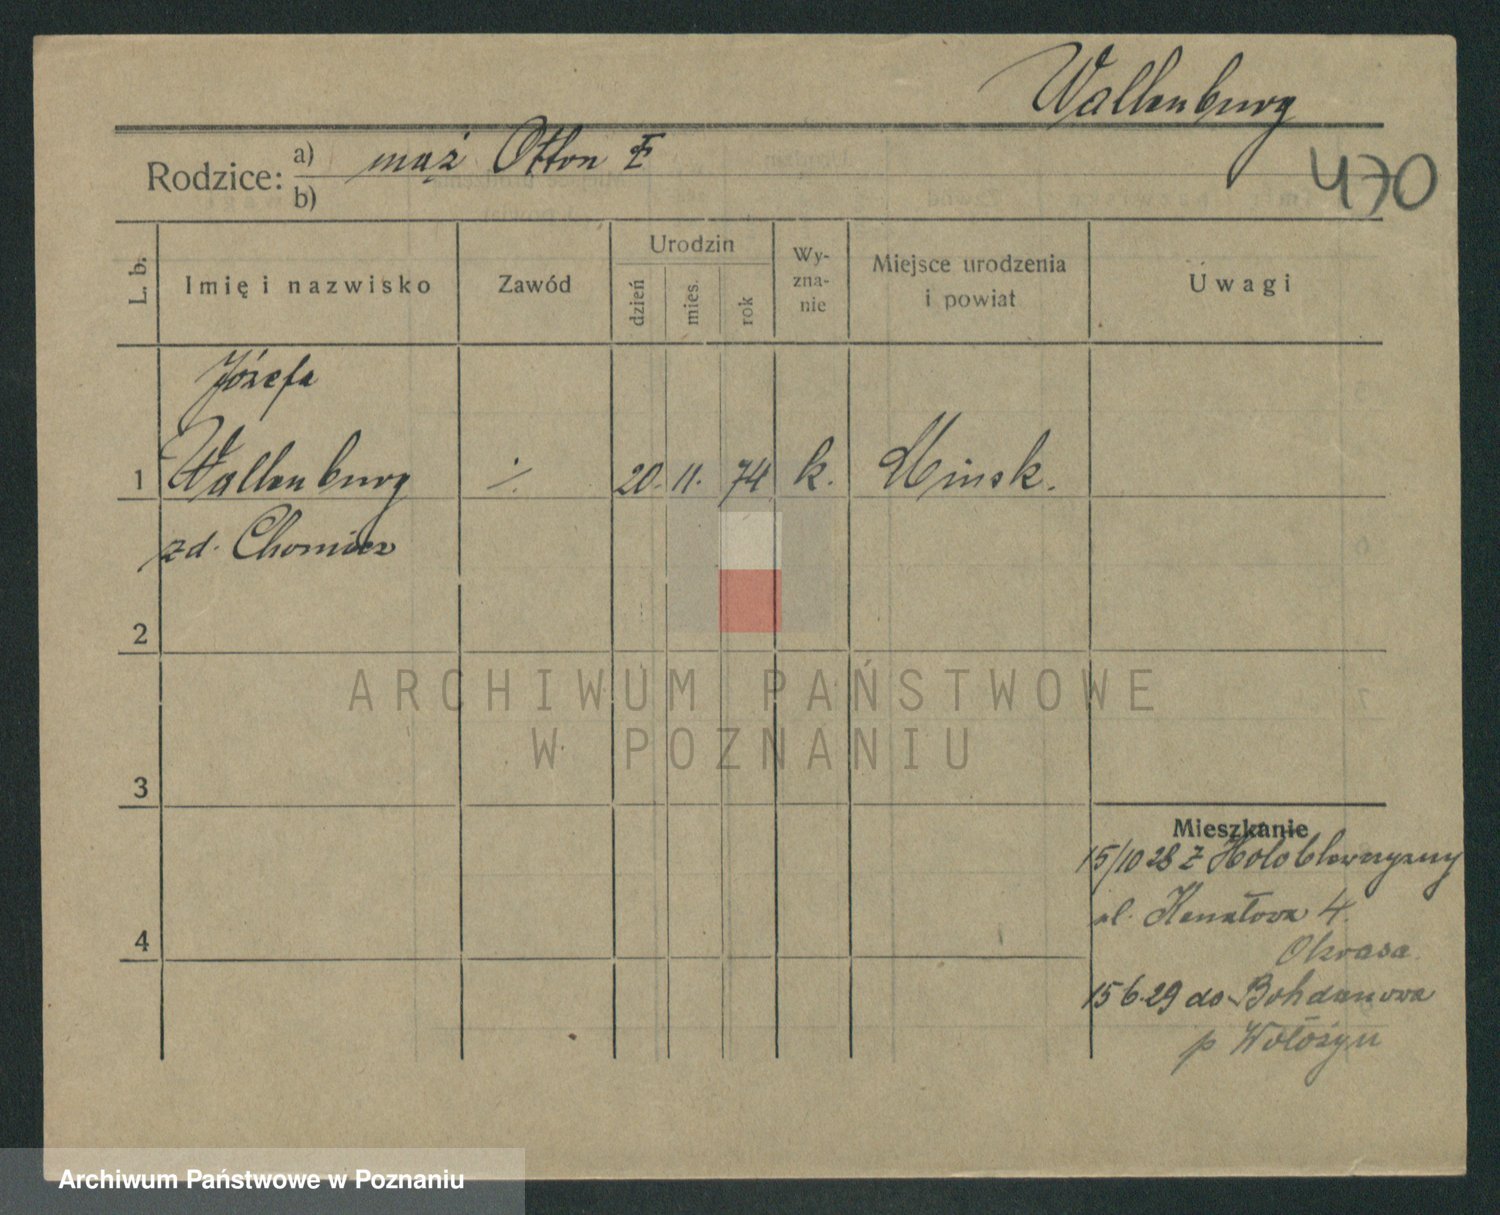 Wallenburg
470
Rodzice:
a) mąż Otton F
b)
L. b.
Imię i nazwisko
Zawód
Urodzin
dzień
mies.
rok
Wy-
zna-
nie
Miejsce urodzenia
i powiat
Uwagi
Józefa
1 Wallenburg ·/. 20. 11. 74 k. Minsk.
zd. Chomicz
2
ARCHIWUM PAŃSTWOWE
W POZNANIU
3
Mieszkanie
15/10 28 z
ul. 4.
Okrasa
4
15 6.29 do Bohdanowa
p Wołożyn
Archiwum Państwowe w Poznaniu